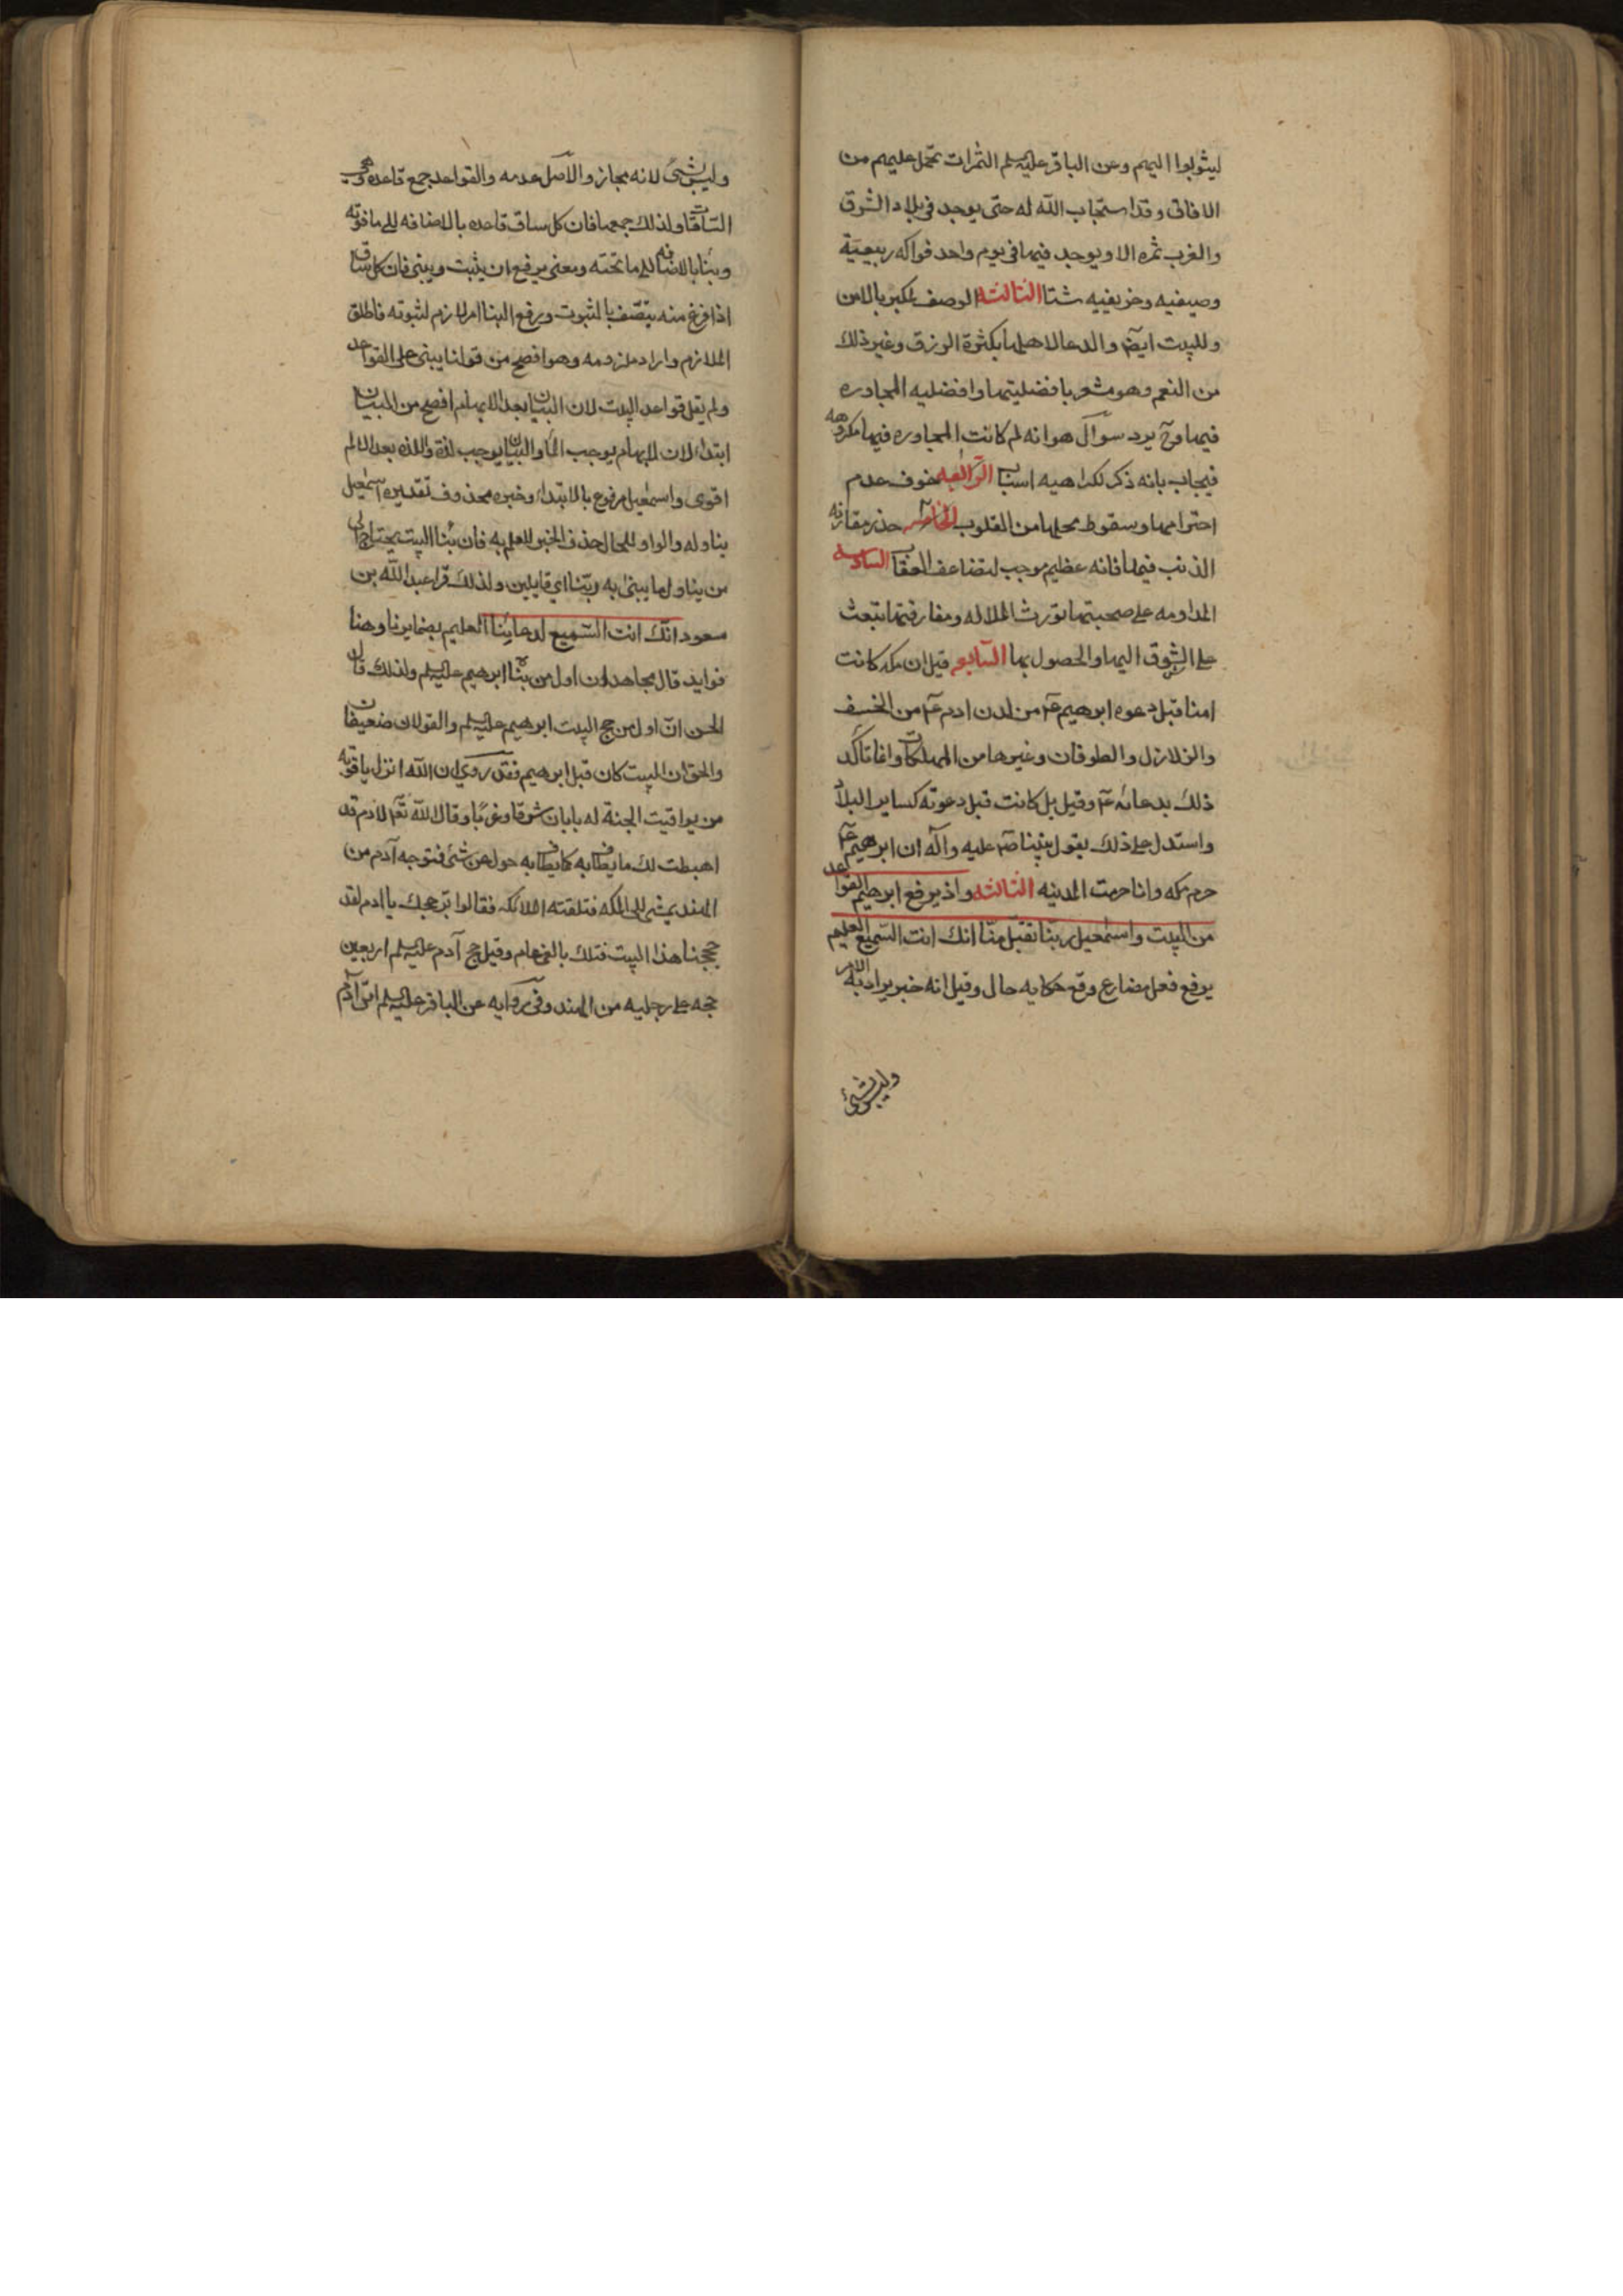 ليثوبوا اليهم وعن الباقر عليه السلم الثمرات تحمل عليهم من
الافاق وقد استجاب الله له حتى يوجد في بلاد الشرق
والغرب ثمره الا ويوجد فيها في يوم واحد فواكه ربيعية
وصيفيه وخريفيه شتا الثالثه الوصف للكبر بالامن
وللبيت ايضا والدعا لاهلها بكثرة الرزق وغير ذلك
من النعم وهو مشعر بافضليتها وافضليه المجاوره
فيها وح يرد سوال هو انه لم كانت المجاوره فيها مكروهه
فيجاب بانه ذكر لكراهيه اسباب الرابعه خوف عدم
احترامها وسقوط محلها من القلوب الخامسه حذر مقارنه
الذنب فيها فانه عظيم موجب لتضاعف العقاب السادسه
المداومه على صحبتها تورث الملاله ومفارقتها تبعث
على الشوق اليها والحصول بها السابع قيل ان مكه كانت
امنا قبل دعوه ابرهيم ع من لدن ادم ع من الخسف
والزلازل والطوفان وغيرها من المهلكات وانما تاكد
ذلك بدعائه ع وقيل بل كانت قبل دعوته كساير البلاد
واستدل على ذلك بقول نبينا ص عليه واله ان ابرهيم ع
حرم مكه وانا حرمت المدينه الثالثه واذ يرفع ابرهيم القواعد
من البيت واسمعيل ربنا تقبل منا انك انت السميع العليم
يرفع فعل مضارع وقع حكايه حال وقيل انه خبر يراد به الامر
وليس بشئ
وليس بشئ لانه مجاز والاصل عدمه والقواعد جمع قاعده وهي
الساقات ولذلك جمعها فان كل ساق قاعده بالاضافه الى ما فوقه
وبنا بالاضافه الى ما تحته ومعنى يرفع ان يثبت ويبنى فان كل ساق
اذا فرغ منه يتصف بالثبوت ورفع البنا امر لازم لثبوته فاطلق
الملازم واراد ملزومه وهو افصح من قولنا يبنى على القواعد
ولم يقل قواعد البيت لان البيان بعد الابهام افصح من البيان
ابتدا لان الابهام يوجب الما والبيان يوجب لذه واللذه بعد الالم
اقوى واسمعيل مرفوع بالابتدا وخبره محذوف تقديره اسمعيل
يناوله والواو للحال حذف الخبر للعلم به فان بنا البيت يحتاج الى
من يناول ما يبنى به ربنا اي قايلين ولذلك قرا عبد الله بن
مسعود انك انت السميع لدعاينا العليم بضمايرنا وهنا
فوايد قال مجاهد ان اول من بنا ابرهيم عليه السلم ولذلك قال
الحسن ان اول من حج البيت ابرهيم عليه السلم والقولان ضعيفان
والحق ان البيت كان قبل ابرهيم فقد روي ان الله انزل ياقوته
من يواقيت الجنة له بابان شرقا وغربا وقال الله تع لادم قد
اهبطت لك ما يطاف به كما يطاف به حول عرشي فتوجه آدم من
الهند يمشي الى المكه فتلقته الملائكه فقالوا بر حجك يا ادم لقد
حججنا هذا البيت قبلك بالفي عام وقيل حج آدم عليه السلم اربعين
حجه على رجليه من الهند وفي روايه عن الباقر عليه السلم اتى آدم